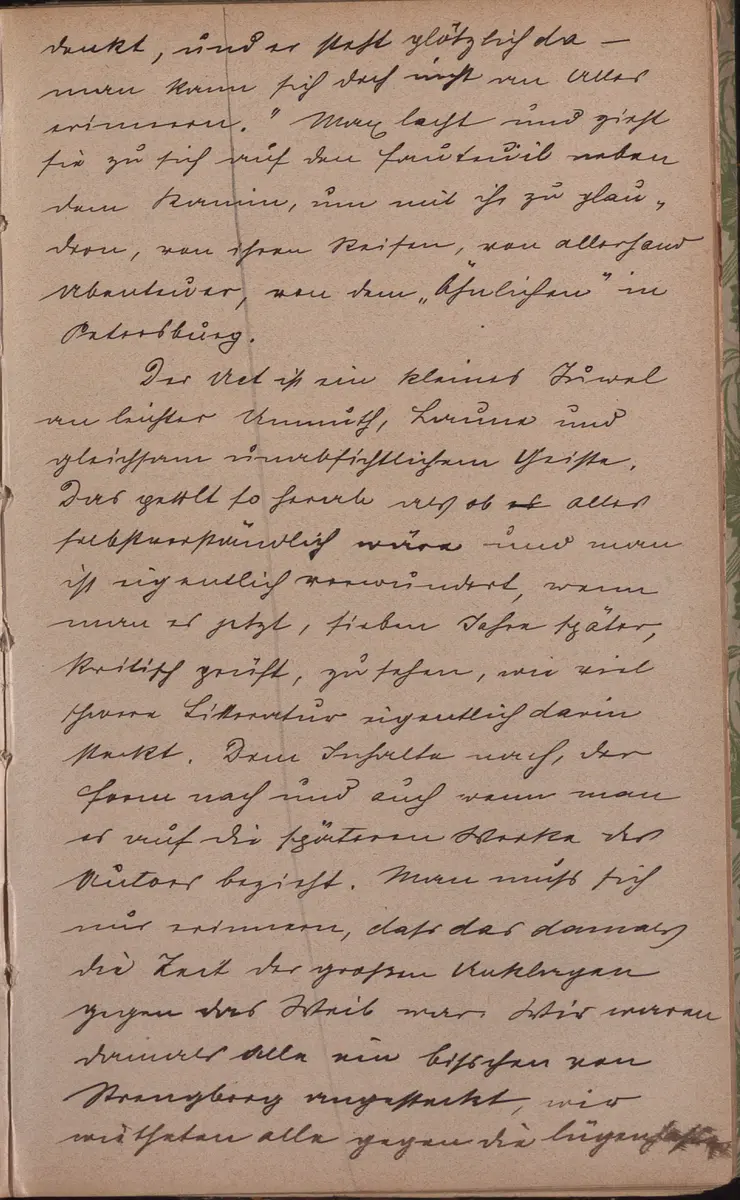 denkt, und er steht plötzlich da —
man kann sich doch nicht an Alles
erinnern." Max lacht und zieht
sie zu sich auf den Fauteuil neben
dem Kamin, um mit ihr zu plau„
dern, von ihren Reisen, von allerhand
Abenteuer, von dem „Ähnlichen" in
Petersburg.
Der Act ist ein kleines Juwel
an leichter Anmuth, Laune und
gleichsam unabsichtlichem Geiste.
Das so herab als ob es alles
selbstverständlich wäre und man
ist eigentlich verwundert, wenn
man es jetzt, sieben Jahre später,
kritisch prüft, zu sehen, wie viel
schwere Litteratur eigentlich darin
steckt. Dem Inhalte nach, der
Form nach und auch wenn man
es auf die späteren Werke des
Autors bezieht. Man muß sich
nur erinnern, daß das damals
die Zeit der großen Anklagen
gegen das Weib war. Wir waren
damals alle ein bischen von
Strengberg angesteckt, wir
wütheten alle gegen die lügenhafte